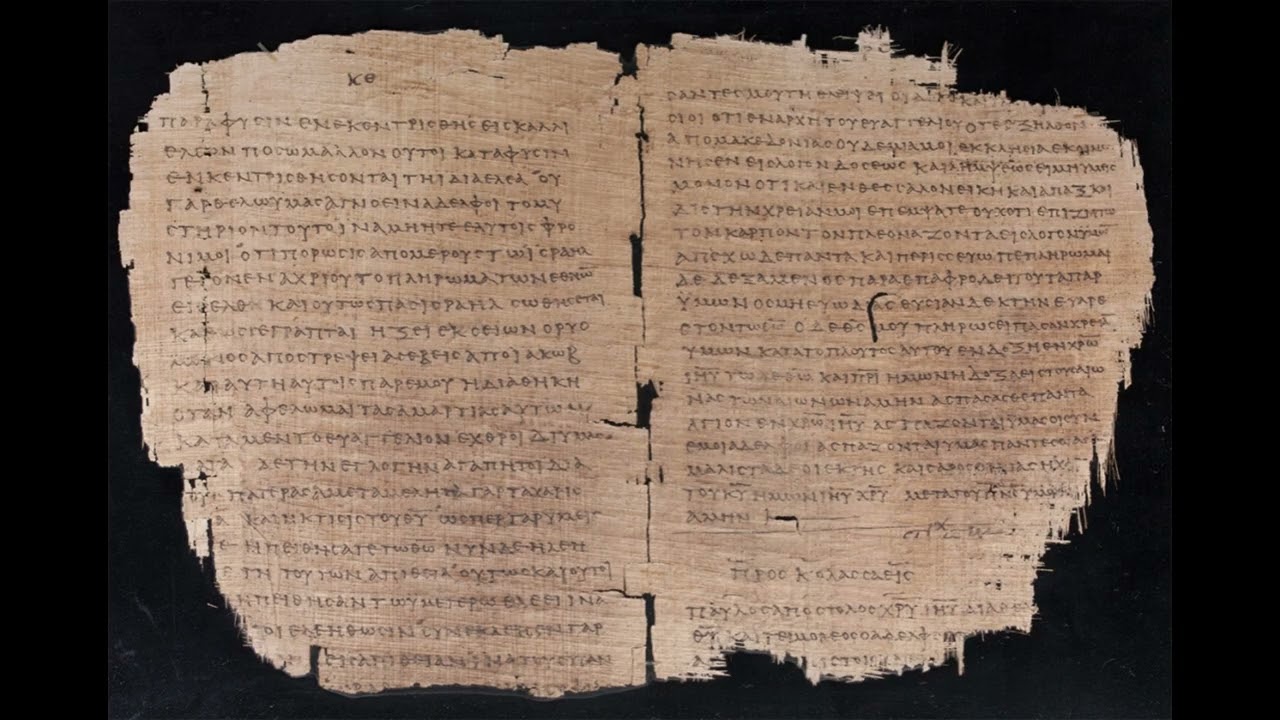 ΚΘ
ΠΑΡΑΦΥΣΙΝ ΕΝΕΚΕΝΤΡΙΣΘΗΣ ΕΙΣ ΚΑΛΛΙ
ΕΛΕΟΝ ΠΟΣΩ ΜΑΛΛΟΝ ΟΥΤΟΙ ΚΑΤΑ ΦΥΣΙΝ
ΕΝΚΕΝΤΡΙΣΘΗΣΟΝΤΑΙ ΤΗ ΙΔΙΑ ΕΛΕΑ ΟΥ
ΓΑΡ ΘΕΛΩ ΥΜΑΣ ΑΓΝΟΕΙΝ ΑΔΕΛΦΟΙ ΤΟ ΜΥ
ΣΤΗΡΙΟΝ ΤΟΥΤΟ ΙΝΑ ΜΗ ΗΤΕ ΕΑΥΤΟΙΣ ΦΡΟ
ΝΙΜΟΙ ΟΤΙ ΠΩΡΩΣΙΣ ΑΠΟ ΜΕΡΟΥΣ ΤΩ ΙΣΡΑΗΛ
ΓΕΓΟΝΕΝ ΑΧΡΙ ΟΥ ΤΟ ΠΛΗΡΩΜΑ ΤΩΝ ΕΘΝΩΝ
ΕΙΣΕΛΘΗ ΚΑΙ ΟΥΤΩΣ ΠΑΣ ΙΣΡΑΗΛ ΣΩΘΗΣΕΤΑΙ
ΚΑΘΩΣ ΓΕΓΡΑΠΤΑΙ ΗΞΕΙ ΕΚ ΣΕΙΩΝ Ο ΡΥΟ
ΜΕΝΟΣ ΑΠΟΣΤΡΕΨΕΙ ΑΣΕΒΕΙΣ ΑΠΟ ΙΑΚΩΒ
ΚΑΙ ΑΥΤΗ ΑΥΤΟΙΣ ΠΑΡ ΕΜΟΥ Η ΔΙΑΘΗΚΗ
ΟΤΑΝ ΑΦΕΛΩΜΑΙ ΤΑΣ ΑΜΑΡΤΙΑΣ ΑΥΤΩΝ
ΚΑΤΑ ΜΕΝ ΤΟ ΕΥΑΓΓΕΛΙΟΝ ΕΧΘΡΟΙ ΔΙ ΥΜΑΣ
ΚΑΤΑ ΔΕ ΤΗΝ ΕΓΛΟΓΗΝ ΑΓΑΠΗΤΟΙ ΔΙΑ
ΤΟΥΣ ΠΑΤΕΡΑΣ ΑΜΕΤΑΜΕΛΗΤΑ ΓΑΡ ΤΑ ΧΑΡΙΣ
ΚΑΙ Η ΚΤΙΣΙΣ ΤΟΥ ΘΥ ΩΣΠΕΡ ΓΑΡ ΥΜΕΙΣ
ΗΠΕΙΘΗΣΑΤΕ ΤΩ ΘΩ ΝΥΝ ΔΕ ΗΛΕΗ
ΤΗ ΤΟΥΤΩΝ ΑΠΙΘΕΙΑ ΟΥΤΩΣ ΚΑΙ ΟΥΤΟΙ
ΗΠΕΙΘΗΣΑΝ ΤΩ ΥΜΕΤΕΡΩ ΕΛΕΕΙ ΙΝΑ
ΤΟΙ ΕΛΕΗΘΩΣΙΝ ΣΥΝΕΚΛΕΙΣΕΝ ΓΑΡ
ΕΙΣ ΑΠΙΘΕΙΑΝ ΙΝΑ ΤΟΥΣ ΠΑΝ
ΣΑΝΤΕΣ ΜΟΥ ΤΗ ΘΛΙΨΕΙ ΟΙΔΑΤΕ ΚΑΙ
ΣΙΟΙ ΟΤΙ ΕΝ ΑΡΧΗ ΤΟΥ ΕΥΑΓΓΕΛΙΟΥ ΟΤΕ ΕΞΗΛΘΟΝ
ΑΠΟ ΜΑΚΕΔΟΝΙΑΣ ΟΥΔΕΜΙΑ ΜΟΙ ΕΚΚΛΗΣΙΑ ΕΚΟΙΝΩ
ΝΗΣΕΝ ΕΙΣ ΛΟΓΟΝ ΔΟΣΕΩΣ ΚΑΙ ΛΗΜΨΕΩΣ ΕΙ ΜΗ ΥΜΕΙΣ
ΜΟΝΟΝ ΟΤΙ ΚΑΙ ΕΝ ΘΕΣΣΑΛΟΝΕΙΚΗ ΚΑΙ ΑΠΑΞ ΚΑΙ
ΔΙΣ ΤΗΝ ΧΡΕΙΑΝ ΜΟΙ ΕΠΕΜΨΑΤΕ ΟΥΧ ΟΤΙ ΕΠΙΖΗΤΩ
ΤΟΝ ΚΑΡΠΟΝ ΤΟΝ ΠΛΕΟΝΑΖΟΝΤΑ ΕΙΣ ΛΟΓΟΝ ΥΜΩΝ
ΑΠΕΧΩ ΔΕ ΠΑΝΤΑ ΚΑΙ ΠΕΡΙΣΣΕΥΩ ΠΕΠΛΗΡΩΜΑΙ
ΔΕ ΔΕΞΑΜΕΝΟΣ ΠΑΡΑ ΕΠΑΦΡΟΔΕΙΤΟΥ ΤΑ ΠΑΡ
ΥΜΩΝ ΟΣΜΗ ΕΥΩΔΙΑΣ ΘΥΣΙΑΝ ΔΕΚΤΗΝ ΕΥΑΡΕ
ΣΤΟΝ ΤΩ ΘΩ Ο ΔΕ ΘΣ ΜΟΥ ΠΛΗΡΩΣΕΙ ΠΑΣΑΝ ΧΡΕΙΑ
ΥΜΩΝ ΚΑΤΑ ΤΟ ΠΛΟΥΤΟΣ ΑΥΤΟΥ ΕΝ ΔΟΞΗ ΕΝ ΧΡΩ
ΙΗΥ ΤΩ ΔΕ ΘΩ ΚΑΙ ΠΡΙ ΗΜΩΝ Η ΔΟΞΑ ΕΙΣ ΤΟΥΣ ΑΙΩ
ΝΑΣ ΤΩΝ ΑΙΩΝΩΝ ΑΜΗΝ ΑΣΠΑΣΑΣΘΕ ΠΑΝΤΑ
ΑΓΙΟΝ ΕΝ ΧΡΩ ΙΗΥ ΑΣΠΑΖΟΝΤΑΙ ΥΜΑΣ ΟΙ ΣΥΝ
ΕΜΟΙ ΑΔΕΛΦΟΙ ΑΣΠΑΖΟΝΤΑΙ ΥΜΑΣ ΠΑΝΤΕΣ ΟΙ ΑΓΙ
ΜΑΛΙΣΤΑ ΔΕ ΟΙ ΕΚ ΤΗΣ ΚΑΙΣΑΡΟΣ ΟΙΚΙΑΣ Η ΧΑ
ΤΟΥ ΚΥ ΗΜΩΝ ΙΗΥ ΧΡΥ ΜΕΤΑ ΤΟΥ ΠΝΣ ΥΜΩΝ
ΑΜΗΝ
ΠΡΟΣ ΚΟΛΑΣΣΑΕΙΣ
ΠΑΥΛΟΣ ΑΠΟΣΤΟΛΟΣ ΧΡΥ ΙΗΥ ΔΙΑ ΘΕ
ΘΥ ΚΑΙ ΤΕΙΜΟΘΕΟΣ Ο ΑΔΕΛΦ